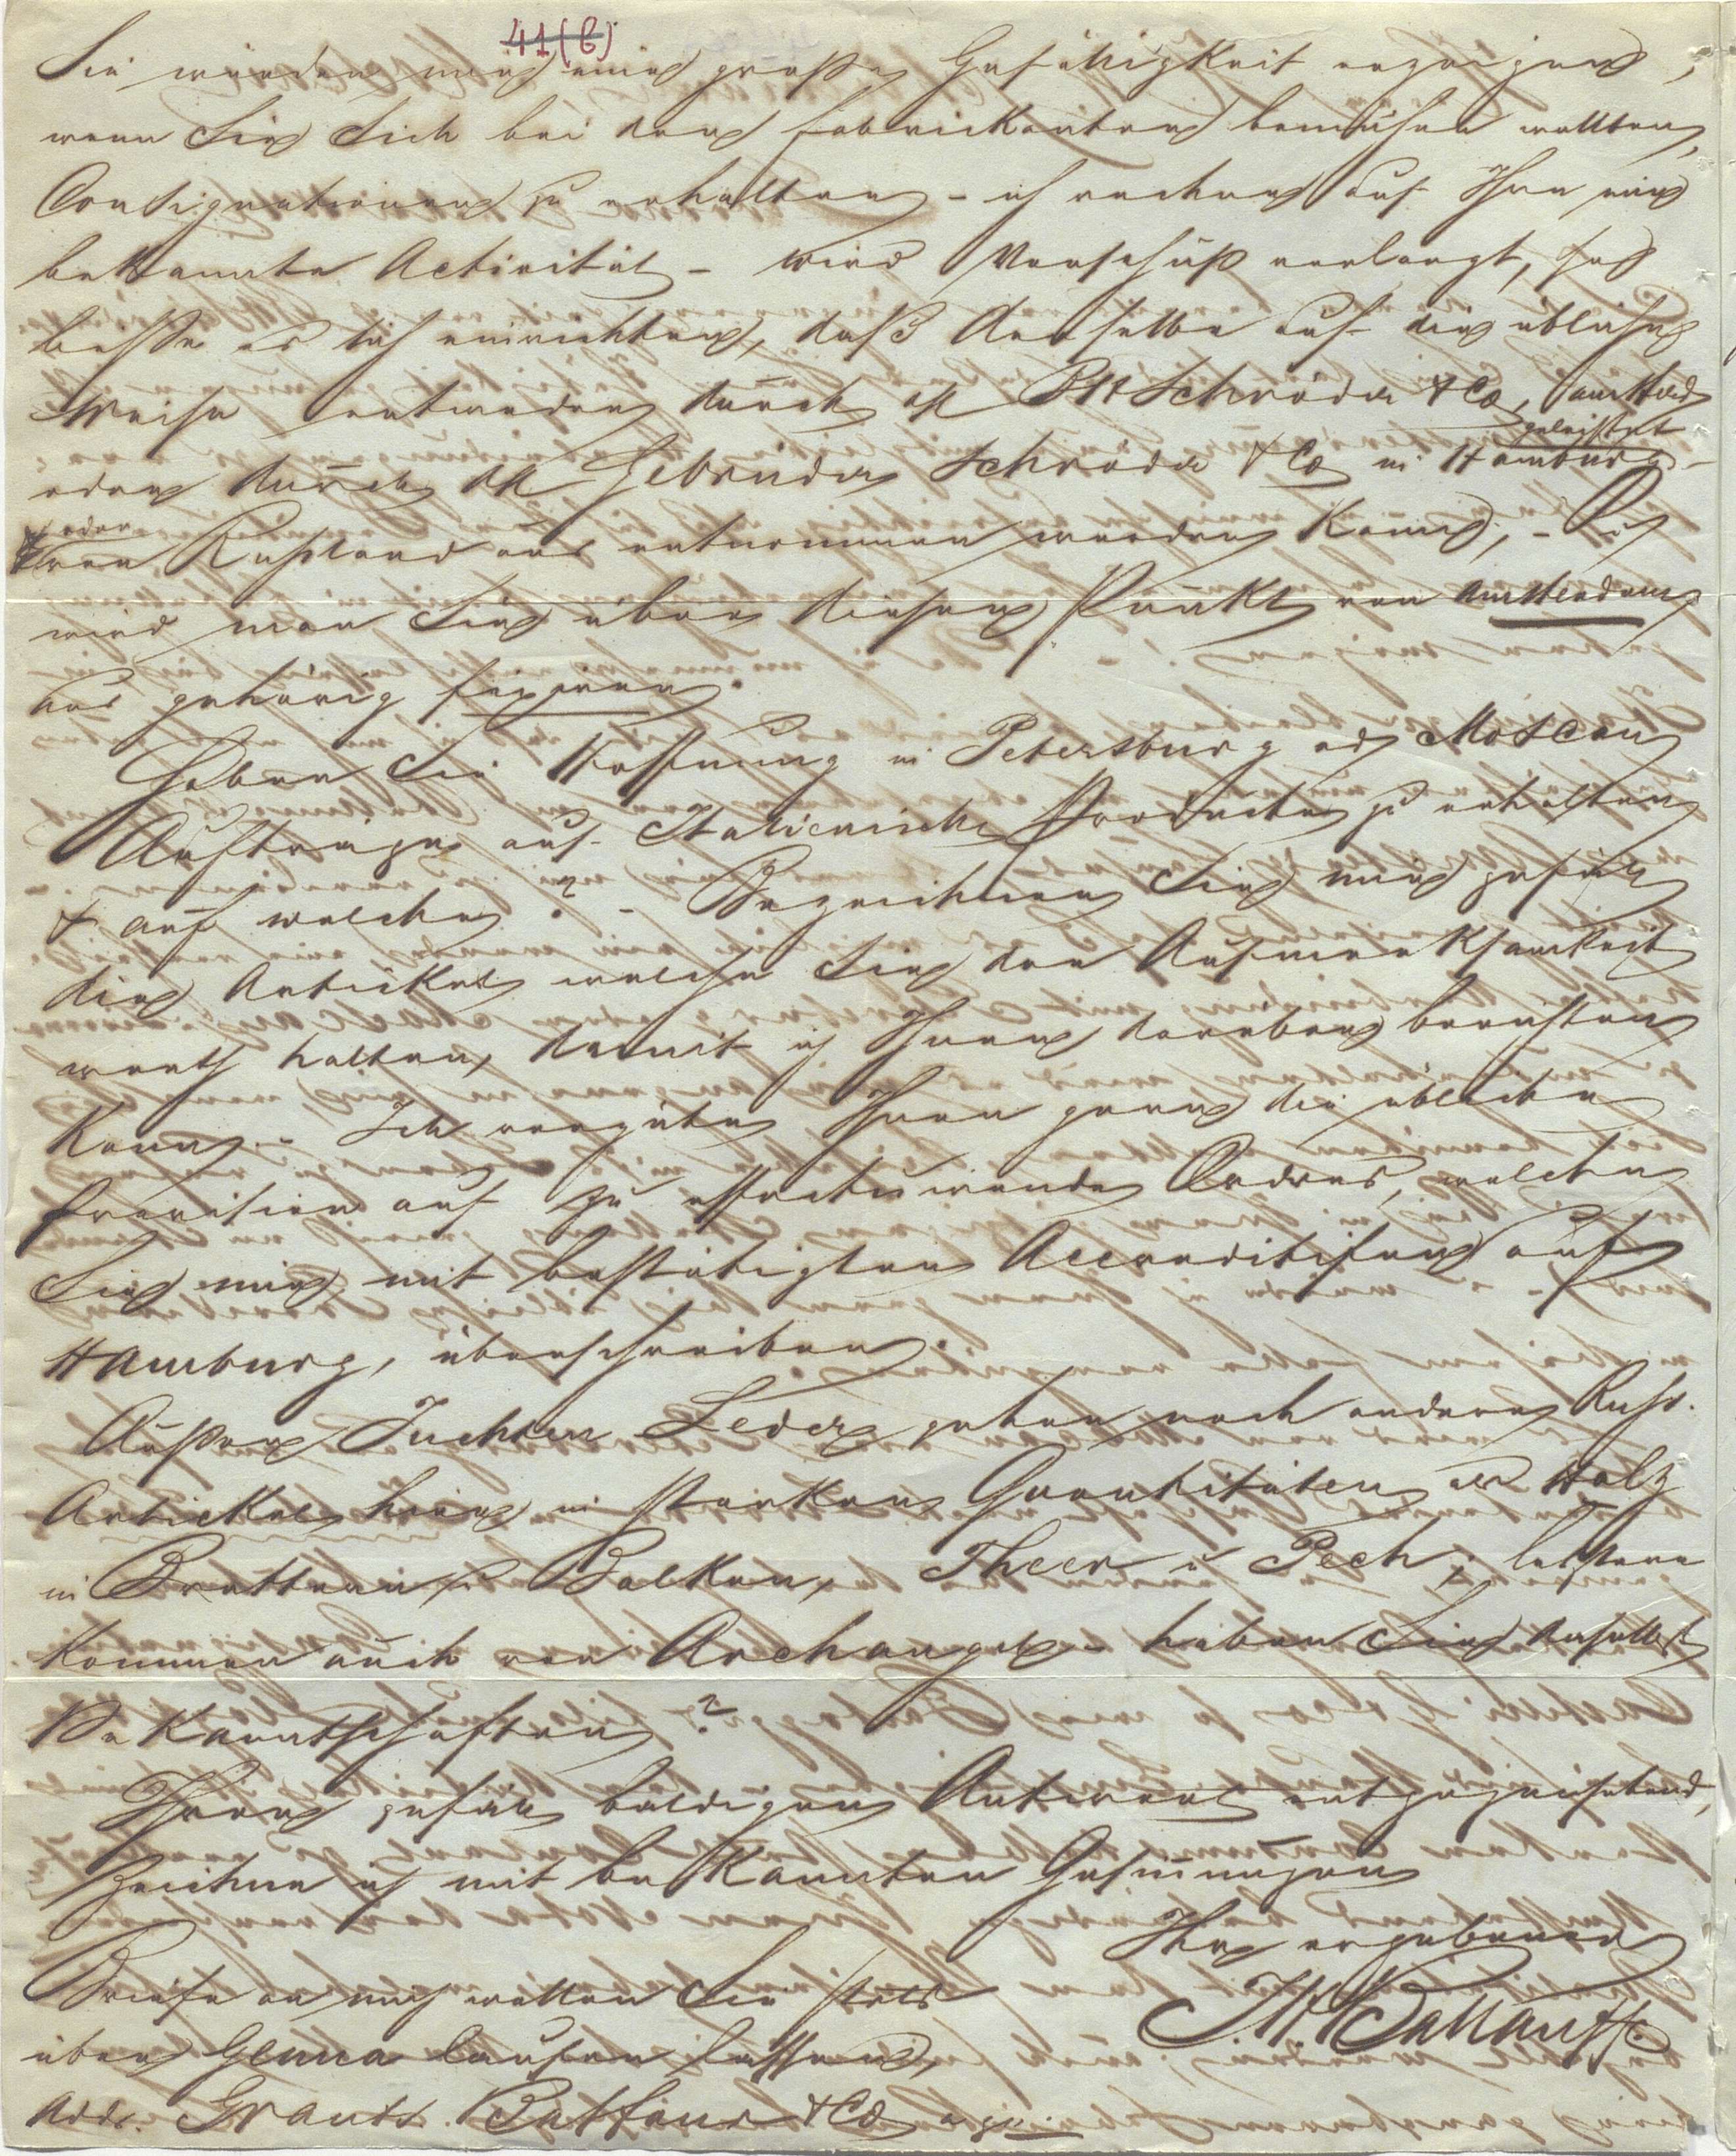 41(6)
Sie würden mir eine große Gefälligkeit erzeigen,
wenn Sie Sich bei den Fabrickanten bemühen wollten,
Consignationen zu erhalten – ich rechne auf Ihre mir
bekannte Activität – wird Vorschuß verlangt, so
ließe es sich einrichten, daß derselbe auf die übliche
Weise entweder durch HH Schröder & Co, Amsterd
geleistet
oder durch HH Gebrüder Schröder & Co in Hamburg –
oder
von Rußland aus entnommen werden kann, –
wird man Sie über diesen Punkt von Amsterdam
aus gehörig
Haben Sie Hoffnung in Petersburg od Moscau
Aufträge auf Italienische Producte zu erhalten
& auf welche? – Bezeichnen Sie mir gefäll
die Artickel welche Sie der Aufmerksamkeit
werth halten, damit ich Ihnen darüber berichten
kann. – Ich vergüte Ihnen gerne die übliche
Provision auf zu effectuirende Ordres, welche
Sie mir mit bestätigten Accreditifen auf
Hamburg, überschreiben
Außer Juchten Leder gehen noch andere Russ.
Artickel hier in starken Quantitäten als Holz
in Brettern u Balken, Theer u Pech; letztere
kommen auch von Archangel – haben Sie daselbst
Bekanntschaften?
Ihrer gefäll baldigen Antwort entgegensehend,
zeichne ich mit bekannten Gesinnungen
Ihr ergebener
Briefe an mich wollen Sie stets
über Genua laufen lassen,
Addr. Grants Balfour & Co